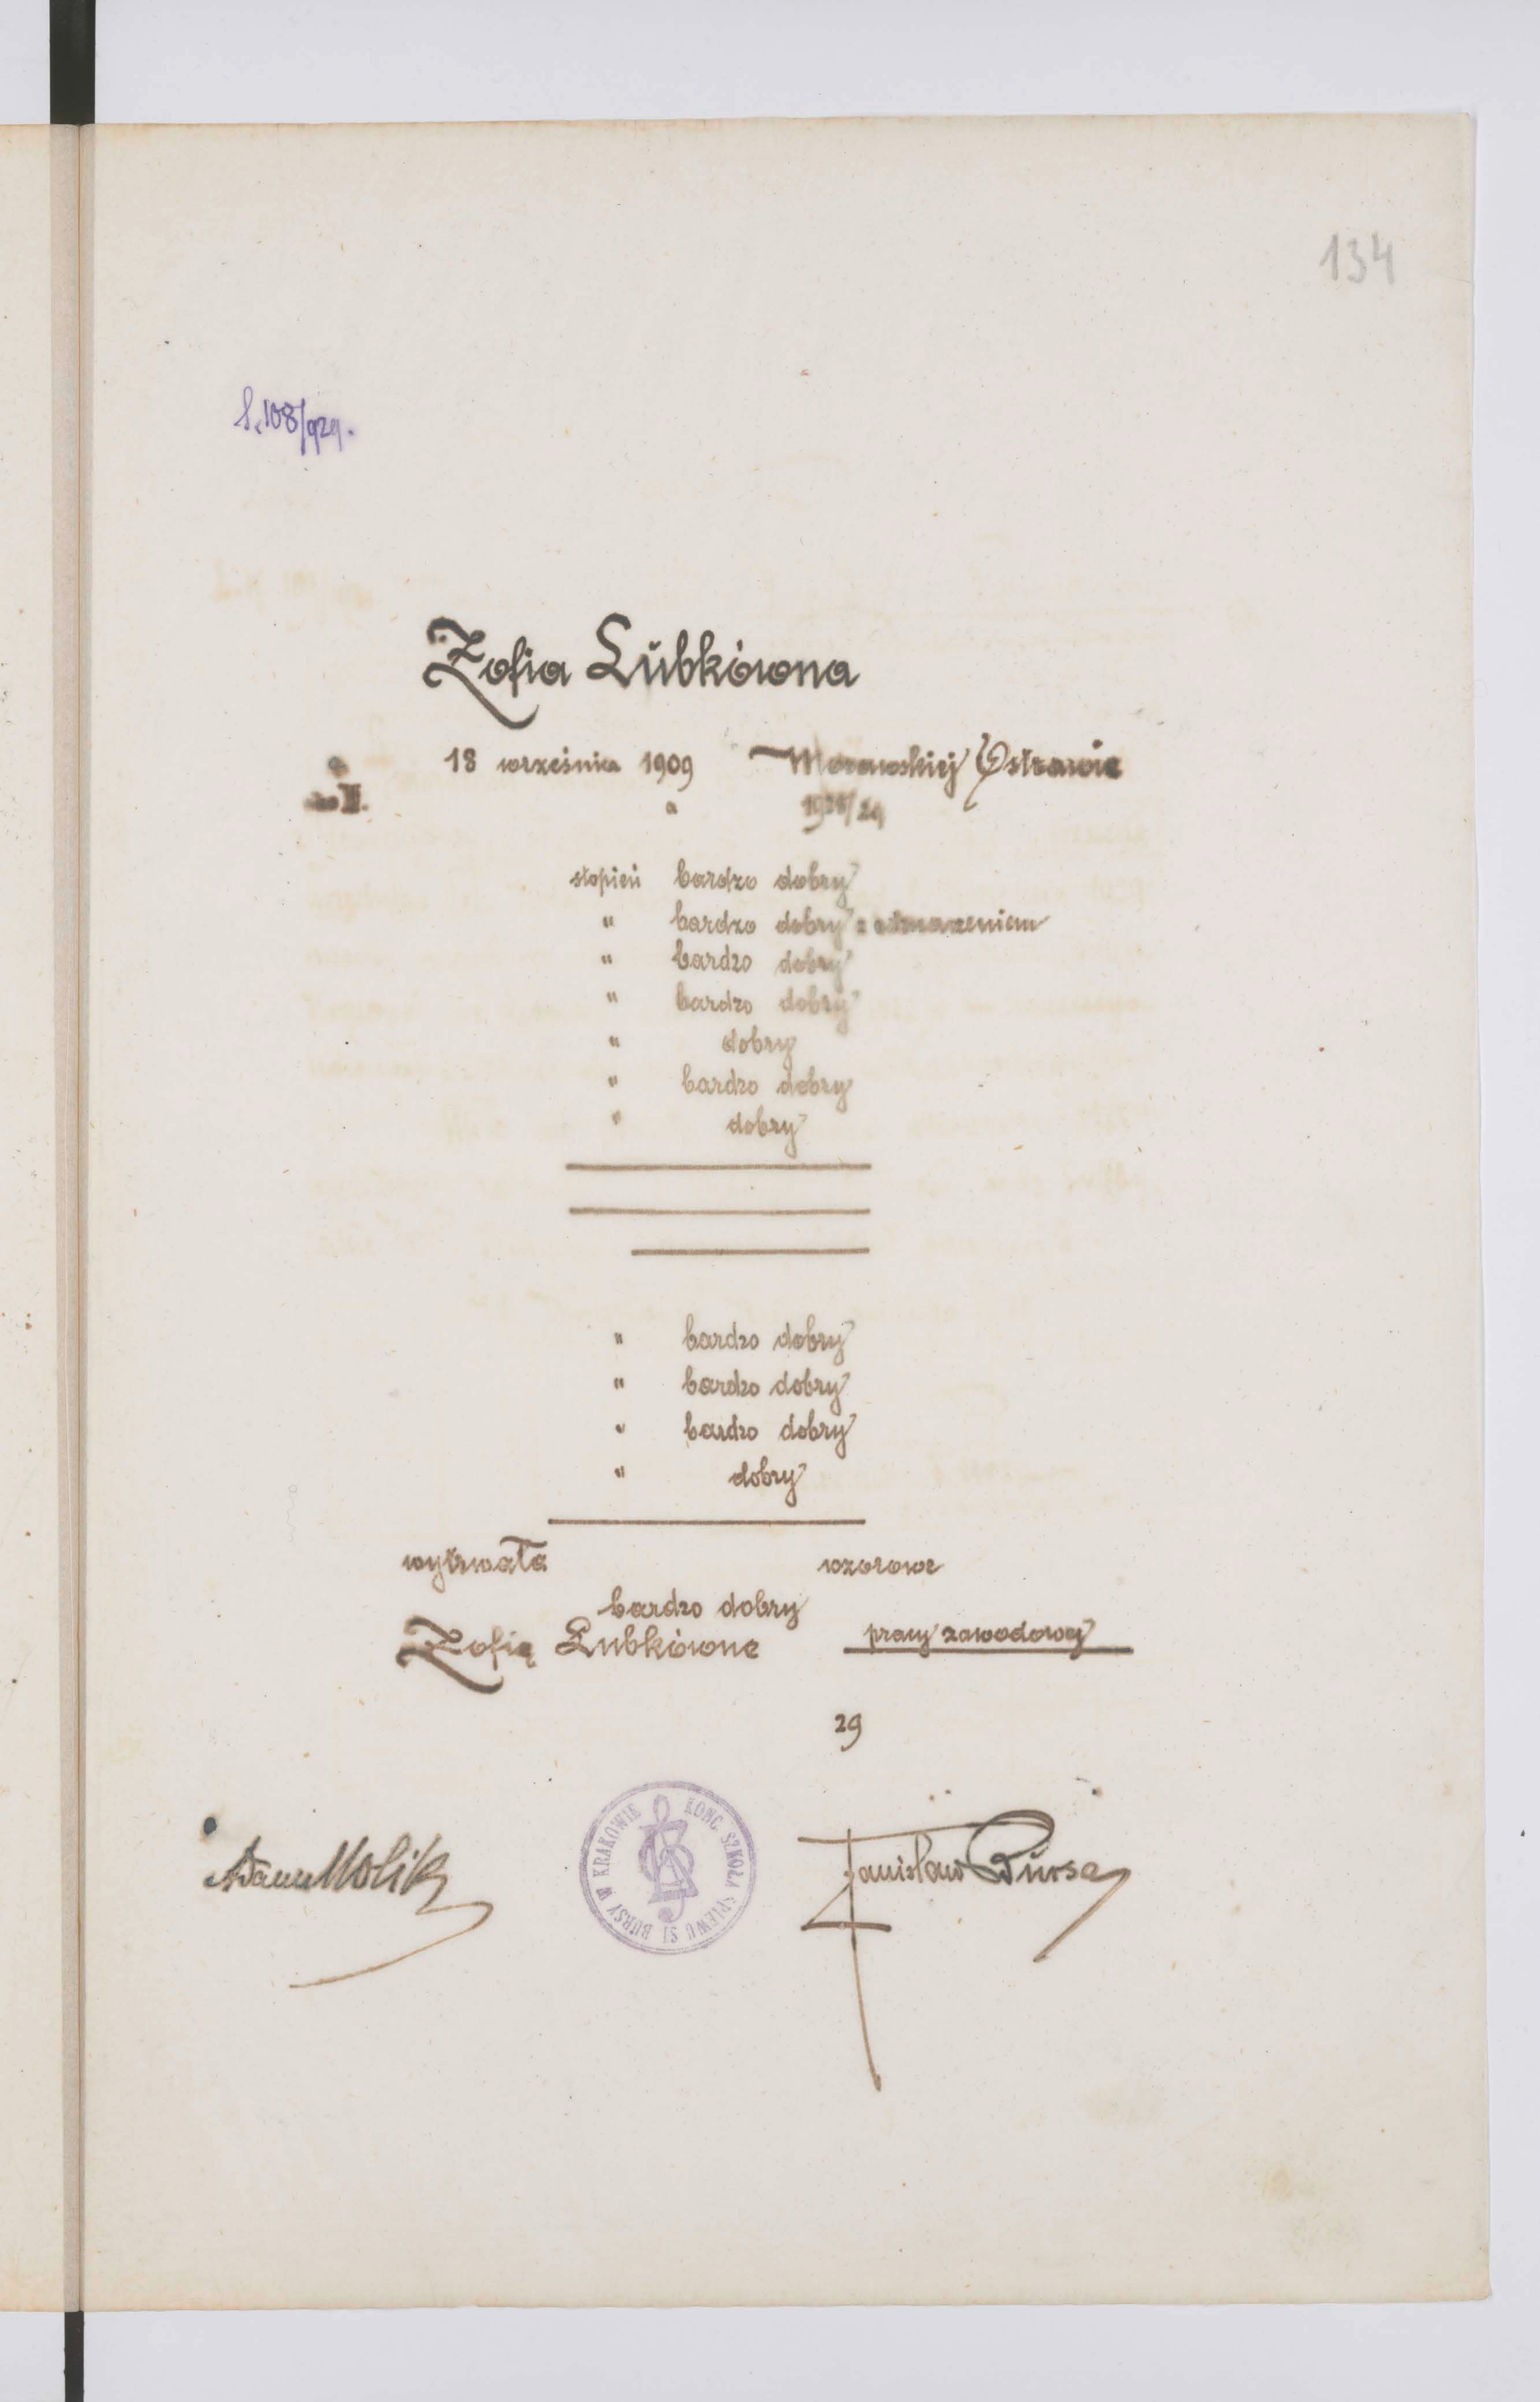 134
L.108/929.
Zofia Lubkówna
18 września 1909 Morawskiej Ostrawie
II.
a 1928/29
stopień bardzo dobry
" bardzo dobry z odznaczeniem
" bardzo dobry
" bardzo dobry
" dobry
" bardzo dobry
" dobry
" bardzo dobry
" bardzo dobry
" bardzo dobry
" dobry
wytrwała wzorowe
bardzo dobry
Zofię Lubkównę pracy zawodowej
29
Adam Molik
KONC. SZKOŁA ŚPIEWU ST BURSY W KRAKOWIE
Stanisław Bursa